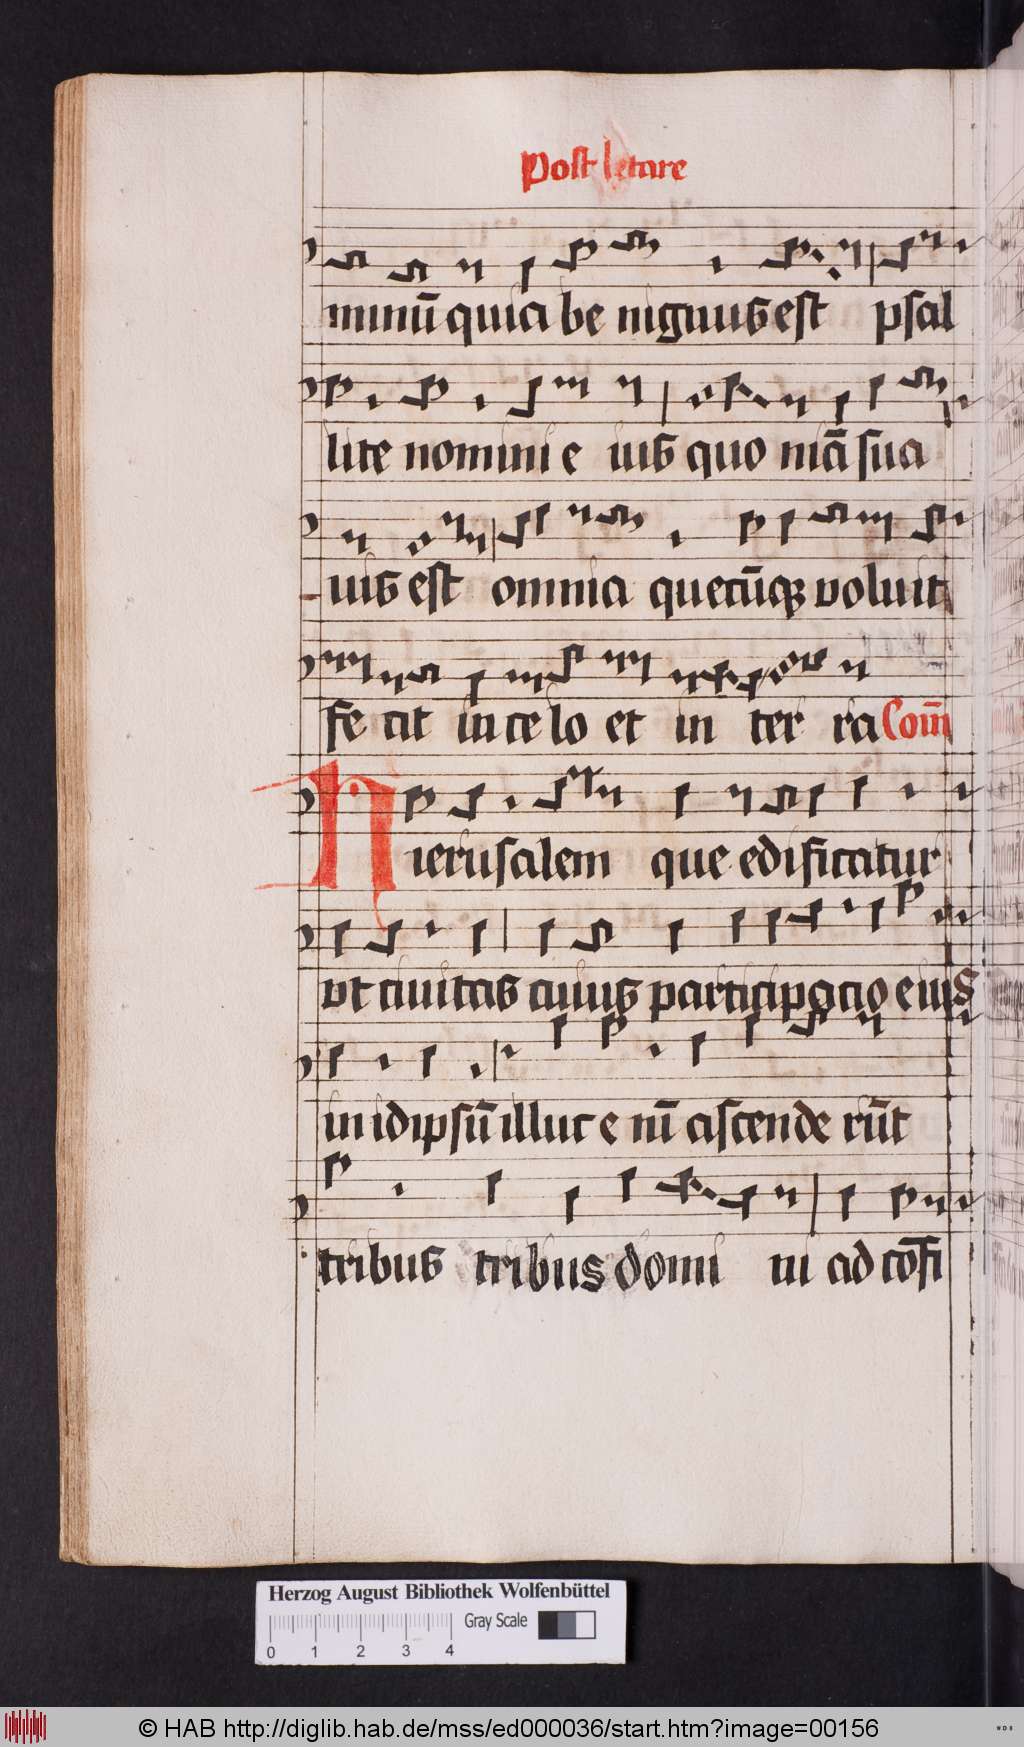 Post letare
minū quia be nignus est psal
lite nomini e ius quo niā sua
uis est omnia quecūqꝫ voluit
fe cit in ce lo et in ter ra Com̄
Hierusalem que edificatur
vt ciuitas cuius participatio eius
in idipsū illuc e ni᷅ ascende rūt
tribus tribus domi ni ad cōfi
Herzog August Bibliothek Wolfenbüttel
Gray Scale
0 1 2 3 4
© HAB http://diglib.hab.de/mss/ed000036/start.htm?image=00156